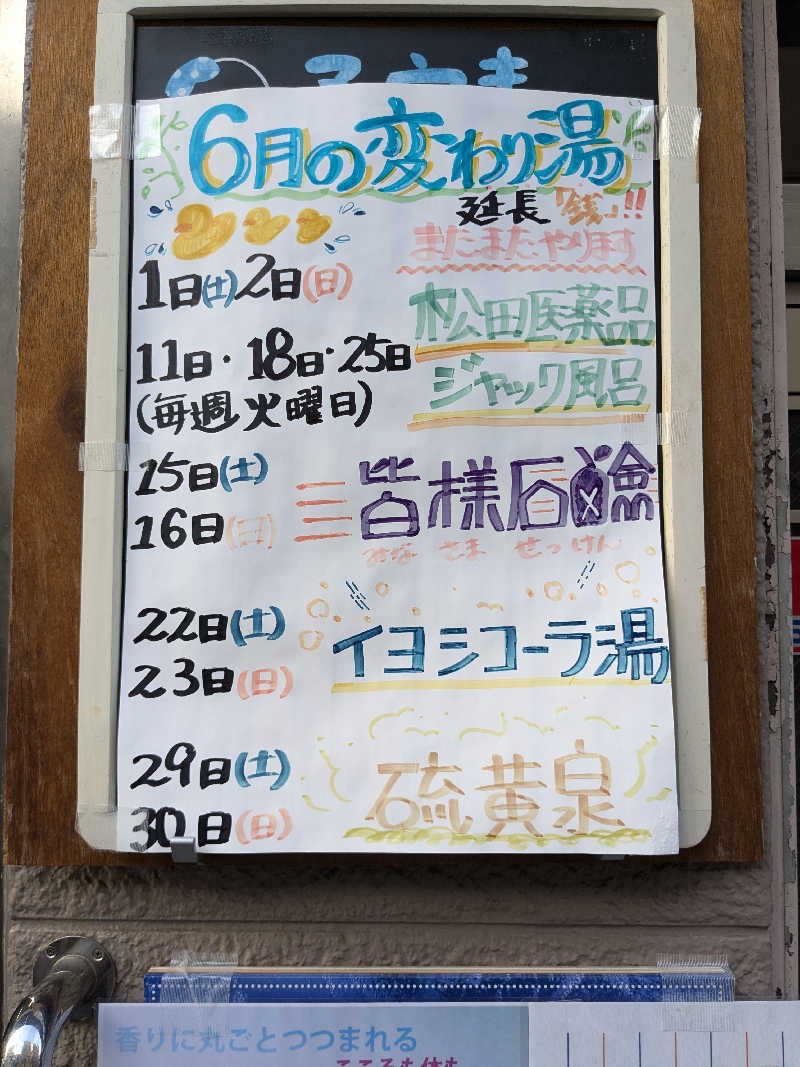 6月の変わり湯
延長「銭」!!
またまたやります
1日(土)2日(日)
松田医薬品
11日・18日・25日
ジャック風呂
(毎週火曜日)
15日(土)
皆様石鹼
16日(日)
みな さま せっけん
22日(土)
イヨシコーラ湯
23日(日)
29日(土)
硫黄泉
30日(日)
香りに丸ごとつつまれる